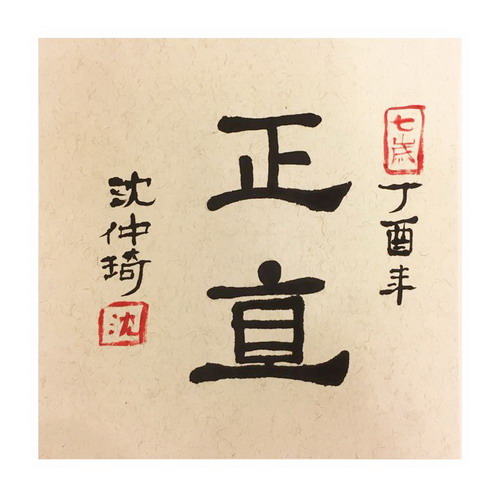 七歲
丁酉年
正直
沈仲琦
沈